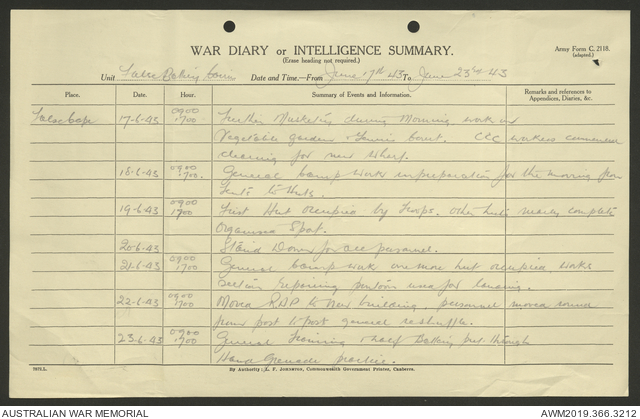 WAR DIARY or INTELLIGENCE SUMMARY.
(Erase heading not required.)
Army Form C. 2118.
(adapted.)
Unit False Date and Time.—From June 17th 43 To June 23rd 43
Place. Date. Hour. Summary of Events and Information. Remarks and references to Appendices, Diaries, &c.
False Cape 17-6-43 0900 1700 Further Musketry during Morning work on
Vegetable garden & Tennis Court. CCC workers commenced
clearing for new wharf.
18-6-43 0900 1700. General Camp work in preparation for the moving from
Tents to Huts.
19-6-43 0900 1700 First Hut occupied by Troops. Other huts nearly complete
Organised Sport.
20-6-43 Stand Down for all personnel.
21-6-43 0900 1700 General Camp work one more hut occupied works
section repairing pontoon used for landing.
22-6-43 0900 1700 Moved RAP to new building, personnel moved round
from post to post general reshuffle.
23-6-43 0900 1700 General Training & half Battery put through
Hand Grenade practice.
By Authority: L. F. Johnston, Commonwealth Government Printer, Canberra.
AUSTRALIAN WAR MEMORIAL
AWM2019.366.3212